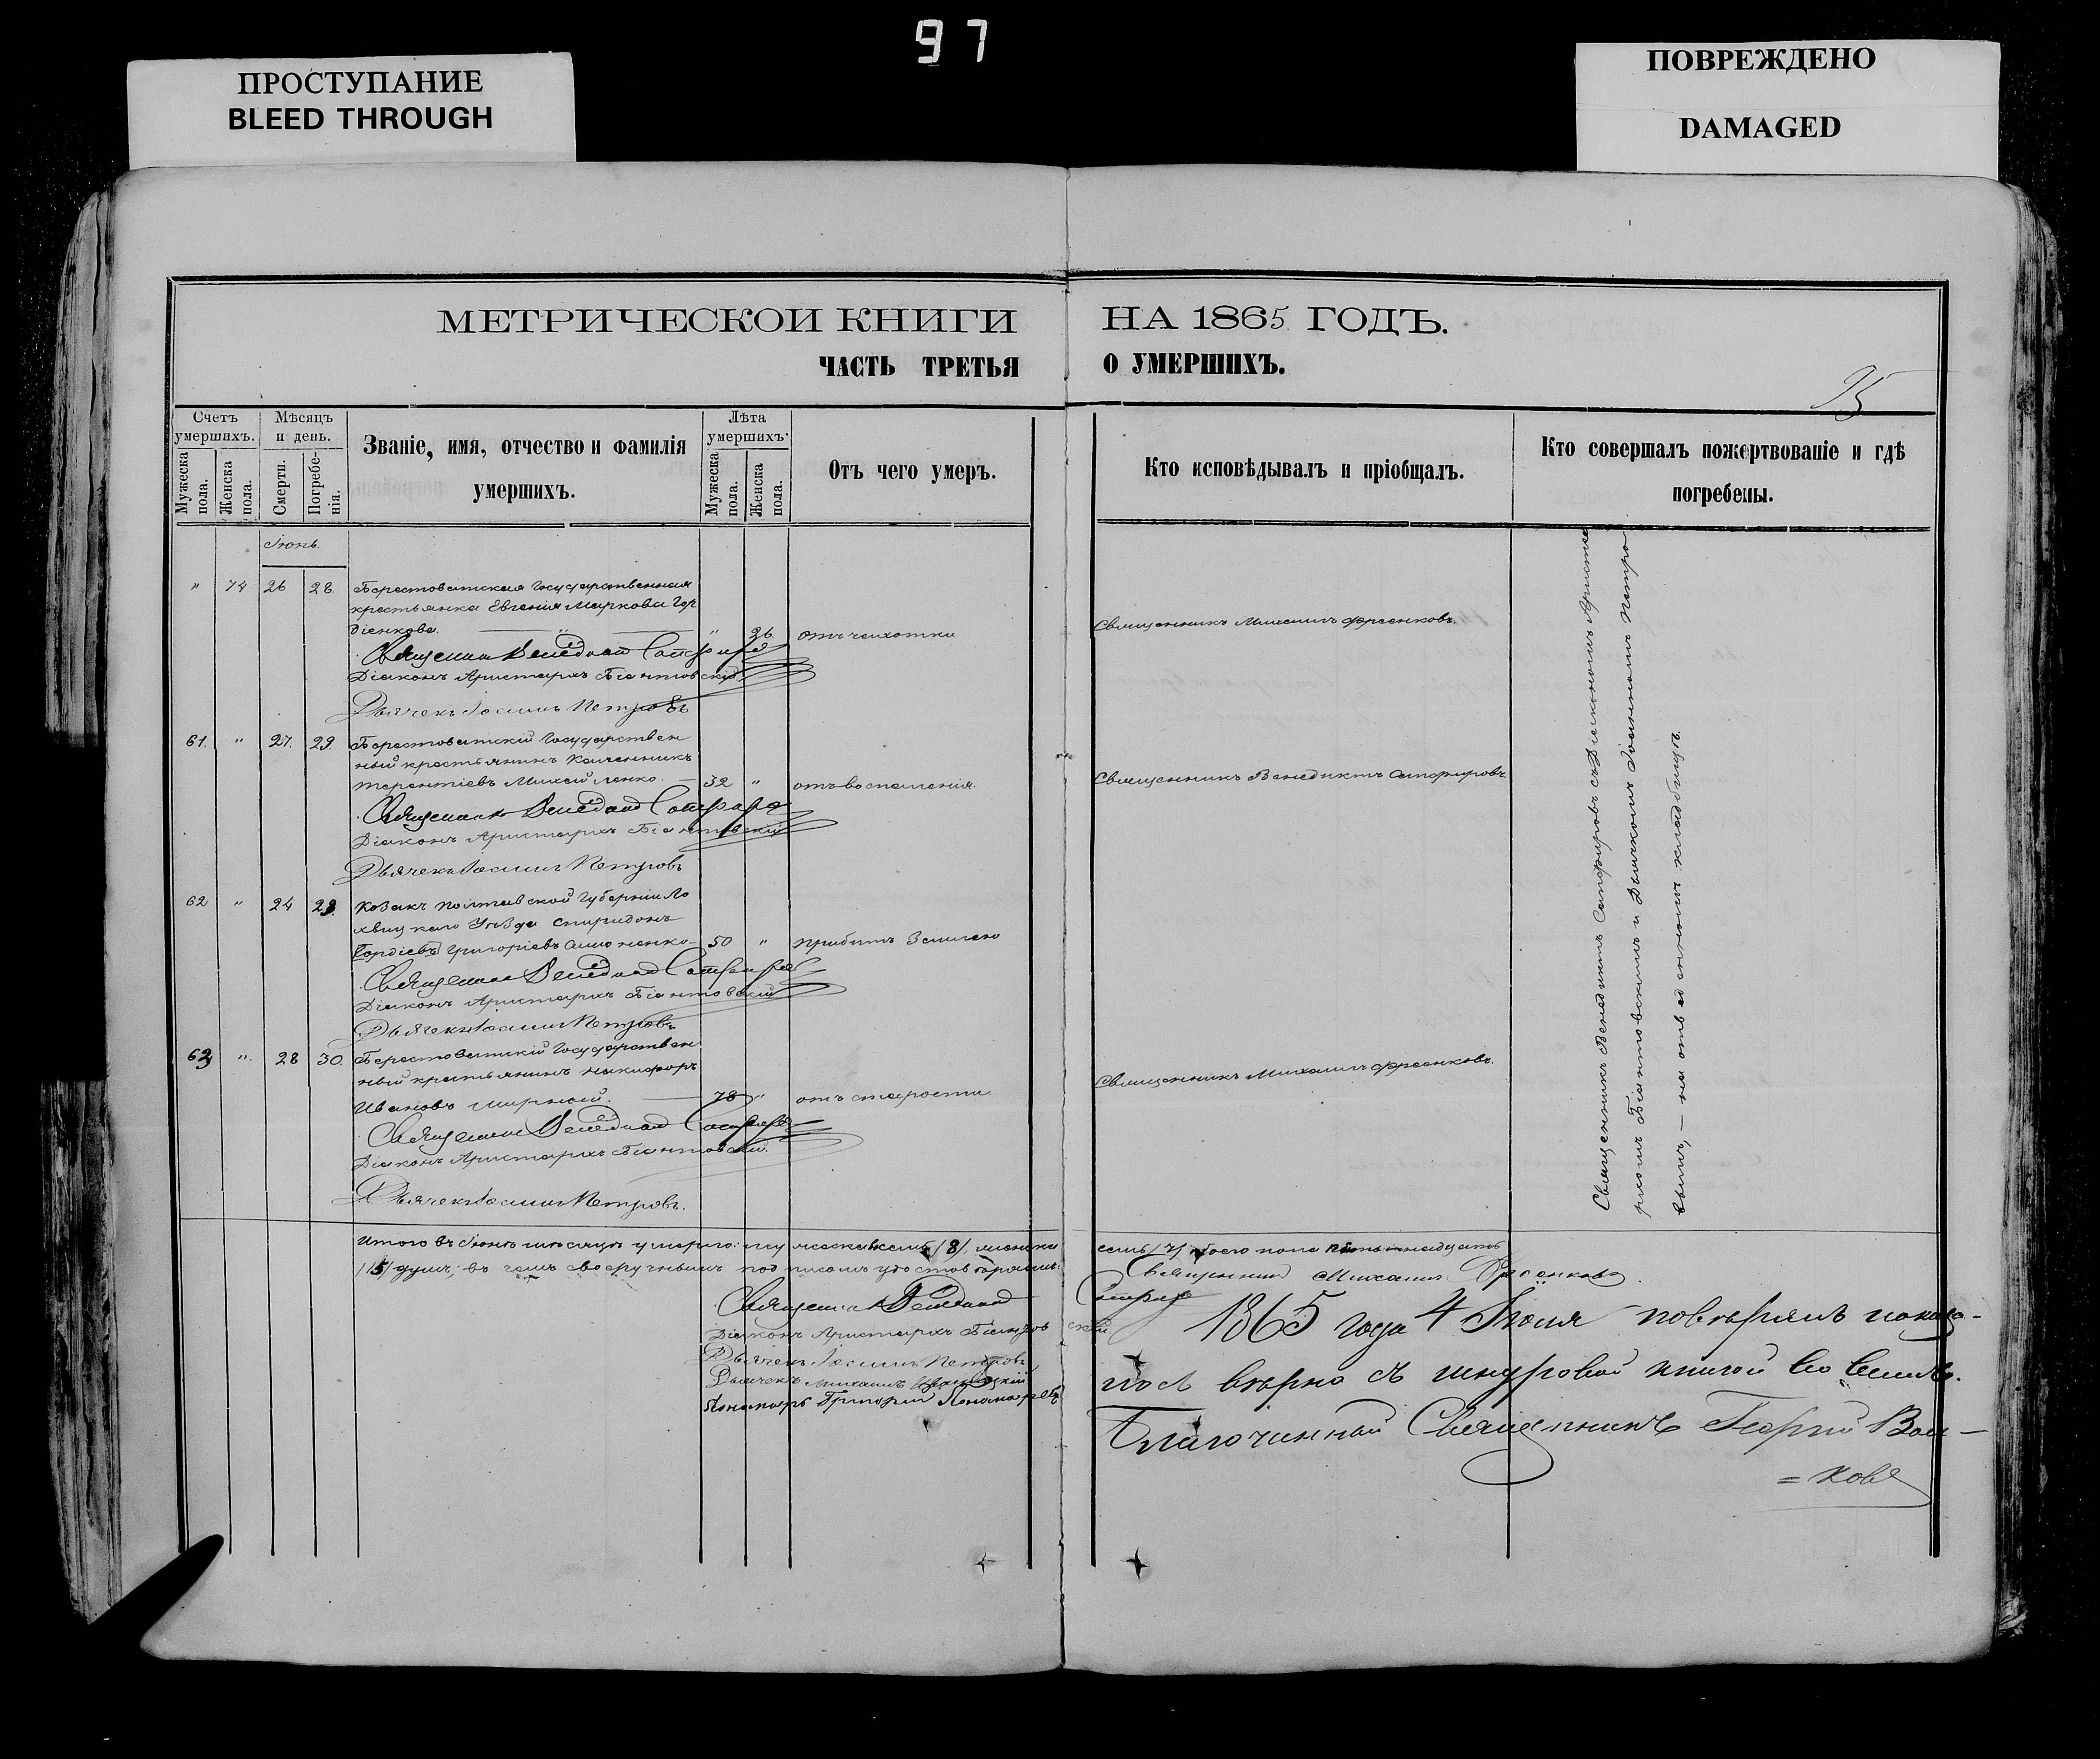 97
ПРОСТУПАНИЕ
BLEED THROUGH
ПОВРЕЖДЕНО
DAMAGED
МЕТРИЧЕСКОЙ КНИГИ НА 1865 ГОДЪ.
ЧАСТЬ ТРЕТЬЯ О УМЕРШИХЪ.
Счетъ умершихъ.
Мужеска пола.
Женска пола.
Мѣсяцъ и день.
Смерти.
Погребенія.
Званіе, имя, отчество и фамилія
умершихъ.
Лѣта умершихъ.
Мужеска пола.
Женска пола.
Отъ чего умеръ.
Кто исповѣдывалъ и пріобщалъ.
Кто совершалъ пожертвованіе и гдѣ
погребены.
Іюнь.
" 74 26 28. Берестоватская Государственная
крестьянка Евгенія Маркова Гор
діенкова. " 36. отъ чахотки Священникъ Михаилъ Ѳеденковъ.
Священникъ Венедиктъ Сапфировъ
Діаконъ Аристархъ Біантовскій
Дьячекъ Іоаннъ Петровъ
61. " 27. 29. Берестоватскій Государствен
ный крестьянинъ Калинникъ
Терентіевъ Михайленко. 32 " отъ воспаленія. Священникъ Венедиктъ Сапфировъ
Священникъ Венедиктъ Сапфировъ
Діаконъ Аристархъ Біантовскій
Дьячекъ Іоаннъ Петровъ
62 " 24 29. Козакъ Полтавской Губерніи Ло
хвицкаго Уѣзда Спиридонъ
Гордіевъ Григоріевъ 50 " прибитъ Землею
Священникъ Венедиктъ Сапфировъ
Діаконъ Аристархъ Біантовскій
Дьячекъ Іоаннъ Петровъ
63 " 28 30. Берестоватскій Государствен
ный крестьянинъ Никифоръ
Ивановъ Мирный. 78 " отъ старости. Священникъ Михаилъ
Священникъ Венедиктъ Сапфировъ
Діаконъ Аристархъ Біантовскій.
Дьячекъ Іоаннъ Петровъ.
Священникъ Венедиктъ Сапфировъ съ Діакономъ Аристар
Біантовскимъ и Дьячкомъ Іоанномъ Петро
вымъ, — на кладбищѣ.
Итого въ Іюнѣ мѣсяцѣ умерло: мужеска восемь /8/, женска семь /7/ обоего пола пятьнадцать
/15/ душъ; въ чемъ своеручнымъ подписомъ удостовѣряемъ:
Священникъ Михаилъ
Священникъ Венедиктъ Сапфировъ
Діаконъ Аристархъ Біантовскій
Дьячекъ Іоаннъ Петровъ
Дьячекъ Михаилъ
Пономарь Григорій Пономаревъ
1865 года 4 Іюля повѣрялъ
вѣрно съ шнуровой книгой во всемъ.
Благочинный Священникъ Георгій Вол-
=ковъ